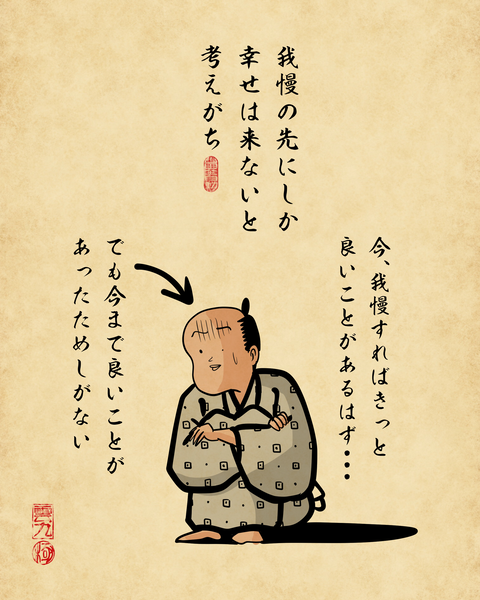 我慢の先にしか
幸せは来ないと
考えがち
今、我慢すればきっと
良いことがあるはず・・・
でも今まで良いことが
あったためしがない